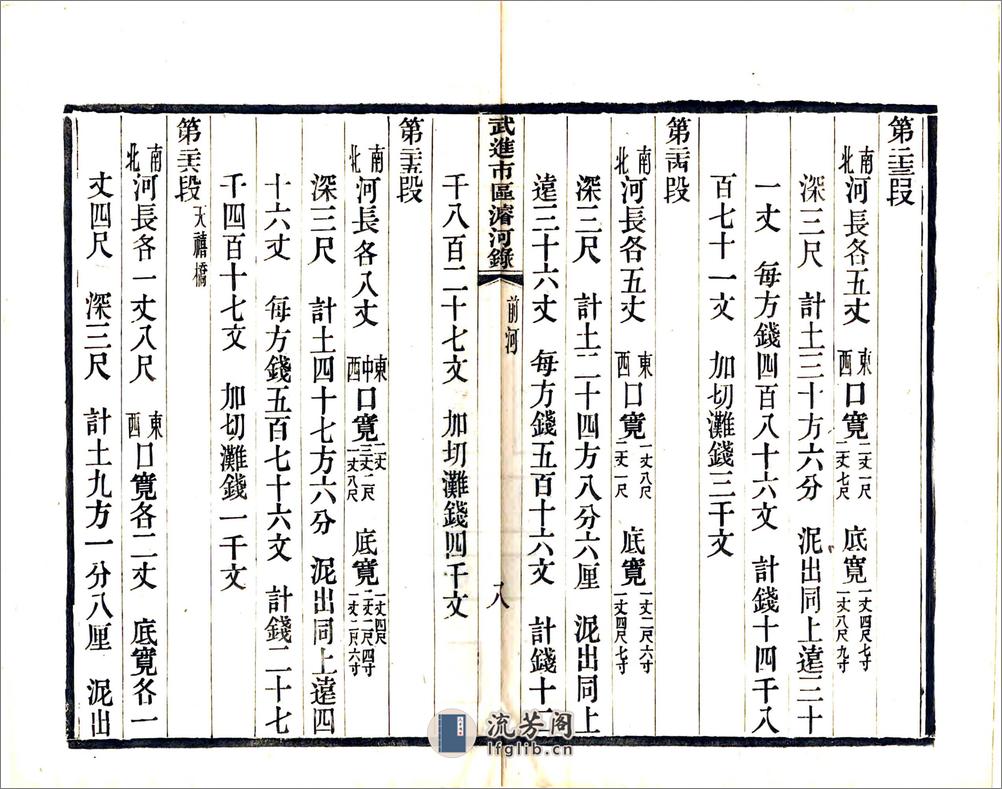 第二十三段
南北河長各五丈 東西口寬二丈一尺二丈七尺 底寬一丈四尺七寸一丈八尺九寸
深三尺 計土三十方六分 泥出同上遠三十
一丈 每方錢四百八十六文 計錢十四千八
百七十一文 加切灘錢三千文
第二十四段
南北河長各五丈 東西口寬一丈八尺二丈一尺 底寬一丈二尺六寸一丈四尺七寸
深三尺 計土二十四方八分六厘 泥出同上
遠三十六丈 每方錢五百十六文 計錢十二
武進市區濬河錄 前河 八
千八百二十七文 加切灘錢四千文
第二十五段
南北河長各八丈 東中西口寬二丈三丈二尺一丈八尺 底寬一丈四尺二丈二尺四寸一丈二尺六寸
深三尺 計土四十七方六分 泥出同上遠四
十六丈 每方錢五百七十六文 計錢二十七
千四百十七文 加切灘錢一千文
第二十六段 天禧橋
南北河長各一丈八尺 東西口寬各二丈 底寬各一
丈四尺 深三尺 計土九方一分八厘 泥出
流芳阁
lfglib.cn